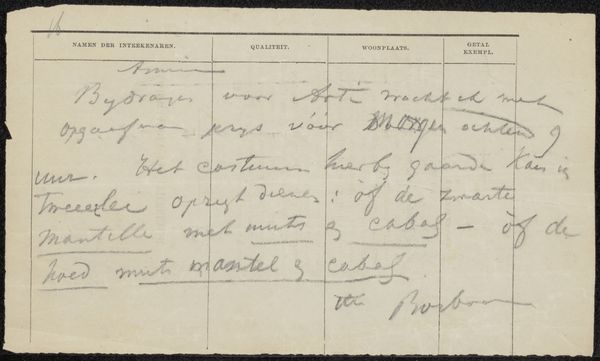 16
NAMEN DER INTEEKENAREN. QUALITEIT. WOONPLAATS. GETAL EXEMPL.
Amice
Bydragen voor Arti wacht ik met
opgaef van prys vóór morgen ochtend 9
uur. Het costuum hierby gaande kan in
tweeerlei opzigt dienen: òf de zwarte
mantille met muts & cabas – òf de
hoed muts mantel & cabas.
Bosboom